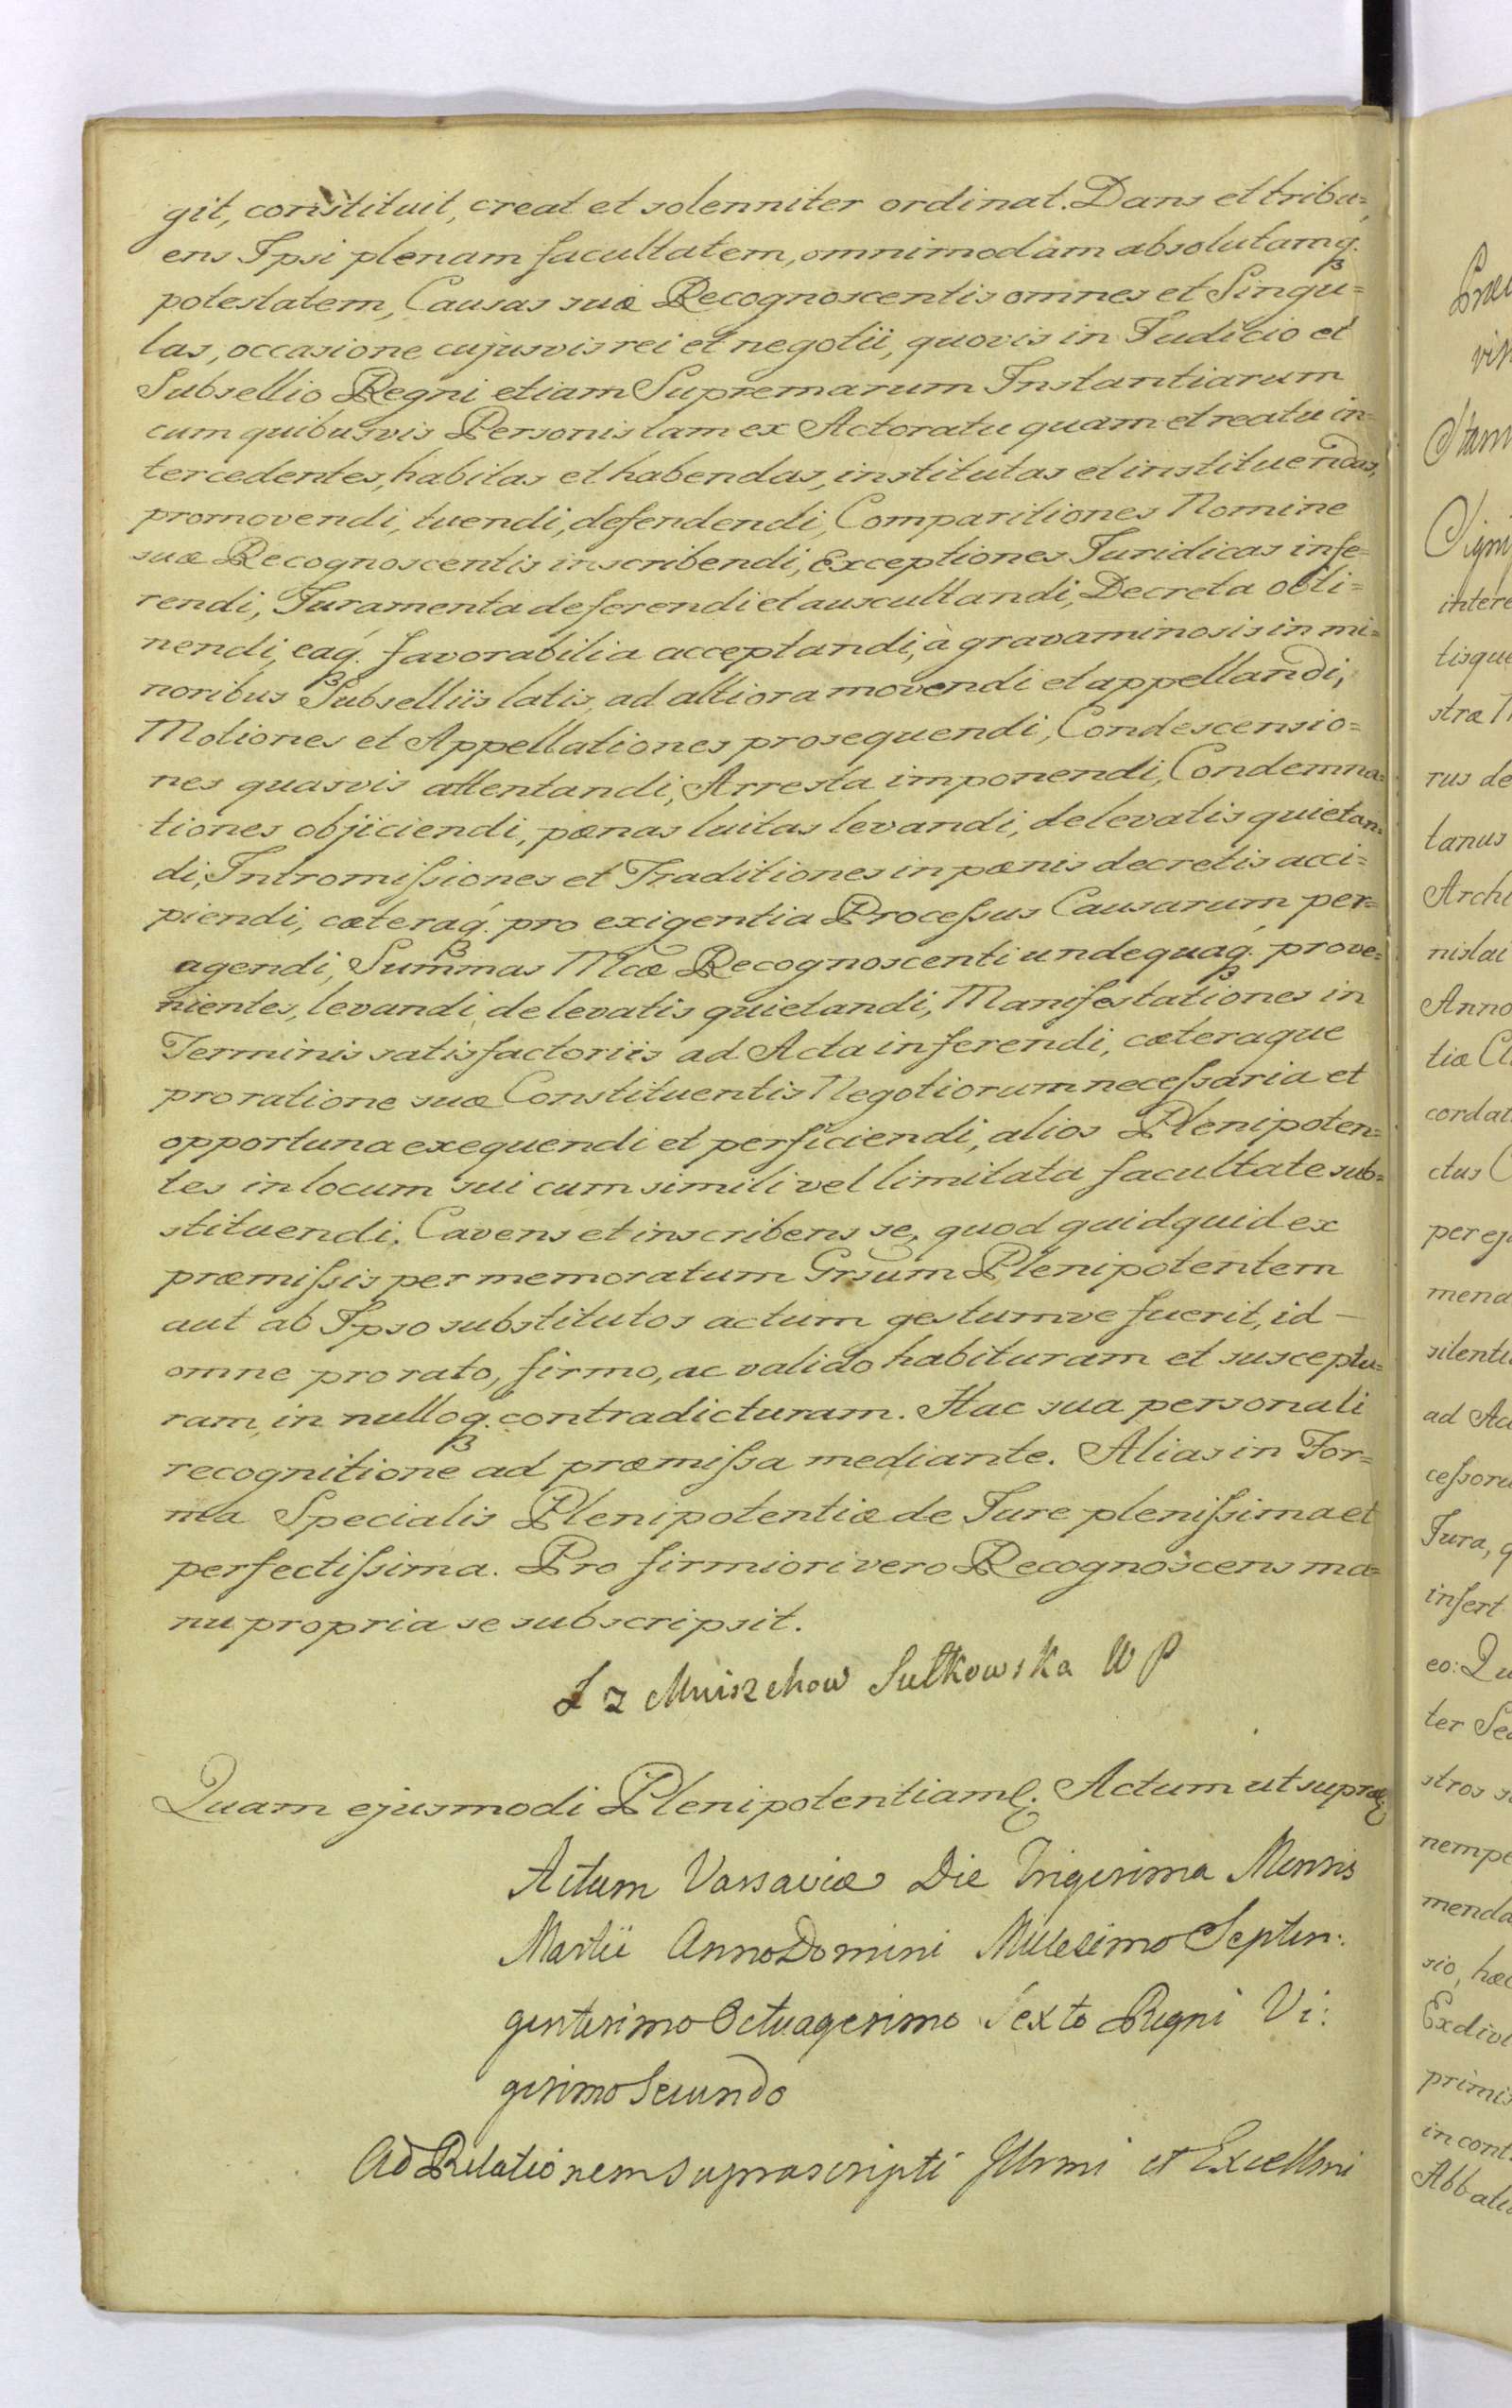 git, constituit, creat et solenniter ordinat. Dans et tribu=
ens Ipsi plenam facultatem, omnimodàm absolutamq.
potestatem, Causas suæ Recognoscentis omnes et Singu=
las, occasione cujusvis rei et negotii, quovis in Judicio et
Subsellio Regni etiam Supremarum Instantiarum
cum quibusvis Personis tam ex Actoratu quam et reatu in=
tercedentes, habitas et habendas, institutas et instituendas,
promovendi, tuendi, defendendi, Comparitiones Nomine
suæ Recognoscentis inscribendi, Exceptiones Juridicas infe=
rendi, Juramenta deferendi et auscultandi, Decreta obti=
nendi, eaq. favorabilia acceptandi, à gravaminosis in mi=
noribus Subselliis latis, ad altiora movendi et appellandi,
Motiones et Appellationes prosequendi, Condescensio=
nes quasvis attentandi, Arresta imponendi, Condemna=
tiones objiciendi, pænas luitas levandi, de levatis quietan=
di, Intromissiones et Traditiones in pænis decretis acci=
piendi, cæteraq. pro exigentia Processus Causarum per=
agendi, Summas Mcæ Recognoscenti undequaq. prove=
nientes, levandi, de levatis quietandi, Manifestationes in
Terminis satisfactoriis ad Acta inferendi, cæteraque
pro ratione suæ Constituentis Negotiorum necessaria et
opportuna exequendi et perficiendi, alios Plenipoten=
tes in locum sui cum simili vel limitata facultate sub=
stituendi. Cavens et inscribens se, quod quidquid ex
præmissis per memoratum Grsum Plenipotentem
aut ab Ipso substitutos actum gestumve fuerit, id —
omne pro rato, firmo, ac valido habituram et susceptu=
ram, in nulloq. contradicturam. Hac sua personali
recognitione ad præmissa mediante. Alias in For=
ma Specialis Plenipotentiæ de Jure plenissima et
perfectissima. Pro firmiori vero Recognoscens ma=
nu propria se subscripsit.
L z Mniszchow Sułkowska W P
Quam ejusmodi Plenipotentiam Actum ut supra
Actum Varsaviæ Die Trigesima Mensis
Martii Anno Domini Millesimo Septin:
gentesimo Octuagesimo Sexto Regni Vi:
gesimo Secundo
Ad Relationem suprascripti Illmi et Excellmi